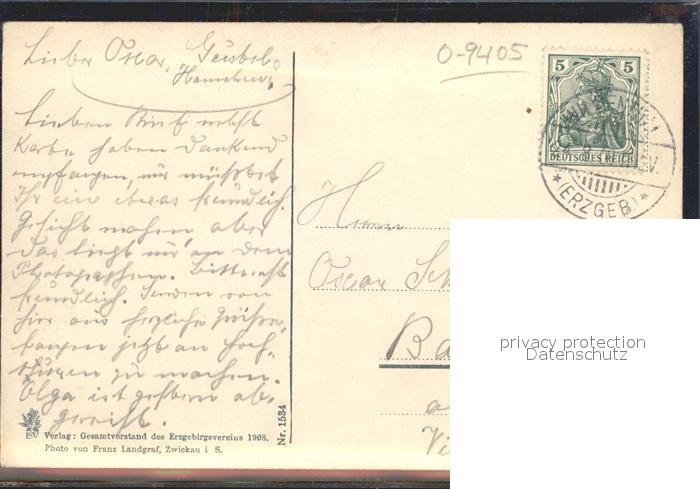 Lieber Oscar,
Lieben Brief nebst
Karte haben dankend
empfangen, nur müßtet
Ihr ein etwas freundlich.
Gesicht machen, aber
das liegt nur an dem
Photographen. Bitte recht
freundlich. Senden von
hier aus herzliche Grüße,
fangen jetzt an Hoch-
zu machen.
Olga ist gestern ab-
gereist.
Verlag: Gesamtvorstand des Erzgebirgsvereins 1908.
Photo von Franz Landgraf, Zwickau i S.
Nr. 1534
O-9405
5 5
DEUTSCHES REICH
(ERZGEB.)
Herrn
Oscar Sch
Ba
privacy protection
Datenschutz